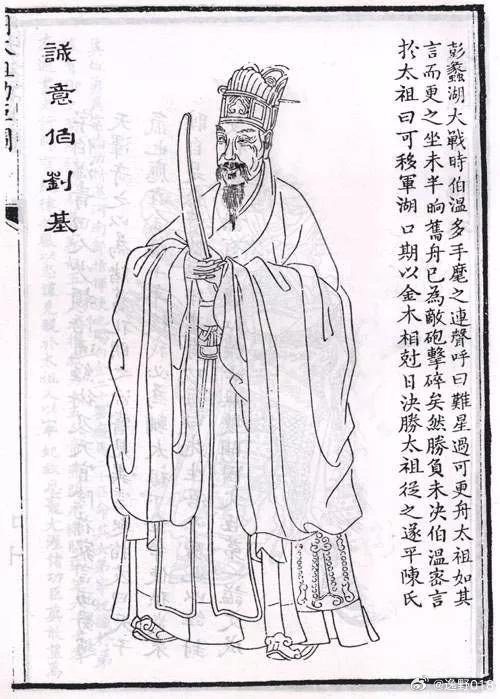 彭蠡湖大戰時伯溫多手麾之連聲呼曰難星過可更舟太祖如其
言而更之坐未半晌舊舟已為敵砲擊碎矣然勝負未决伯溫密言
扵太祖曰可移軍湖口期以金木相尅日決勝太祖從之遂平陳氏
誠意伯劉基
@逸野016